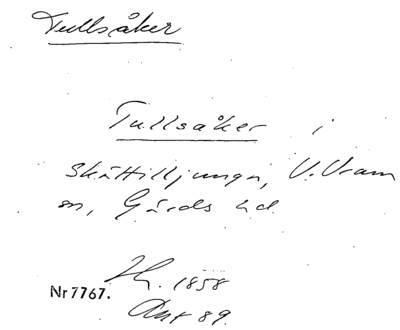 Tullsåker
Tullsåker i
Skättilljunga, V. Vram
sn, Gärds hd
1858
Nr 7767.
Ant 89.